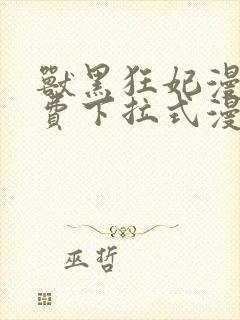 獸黑狂妃漫
費下拉式漫
巫哲